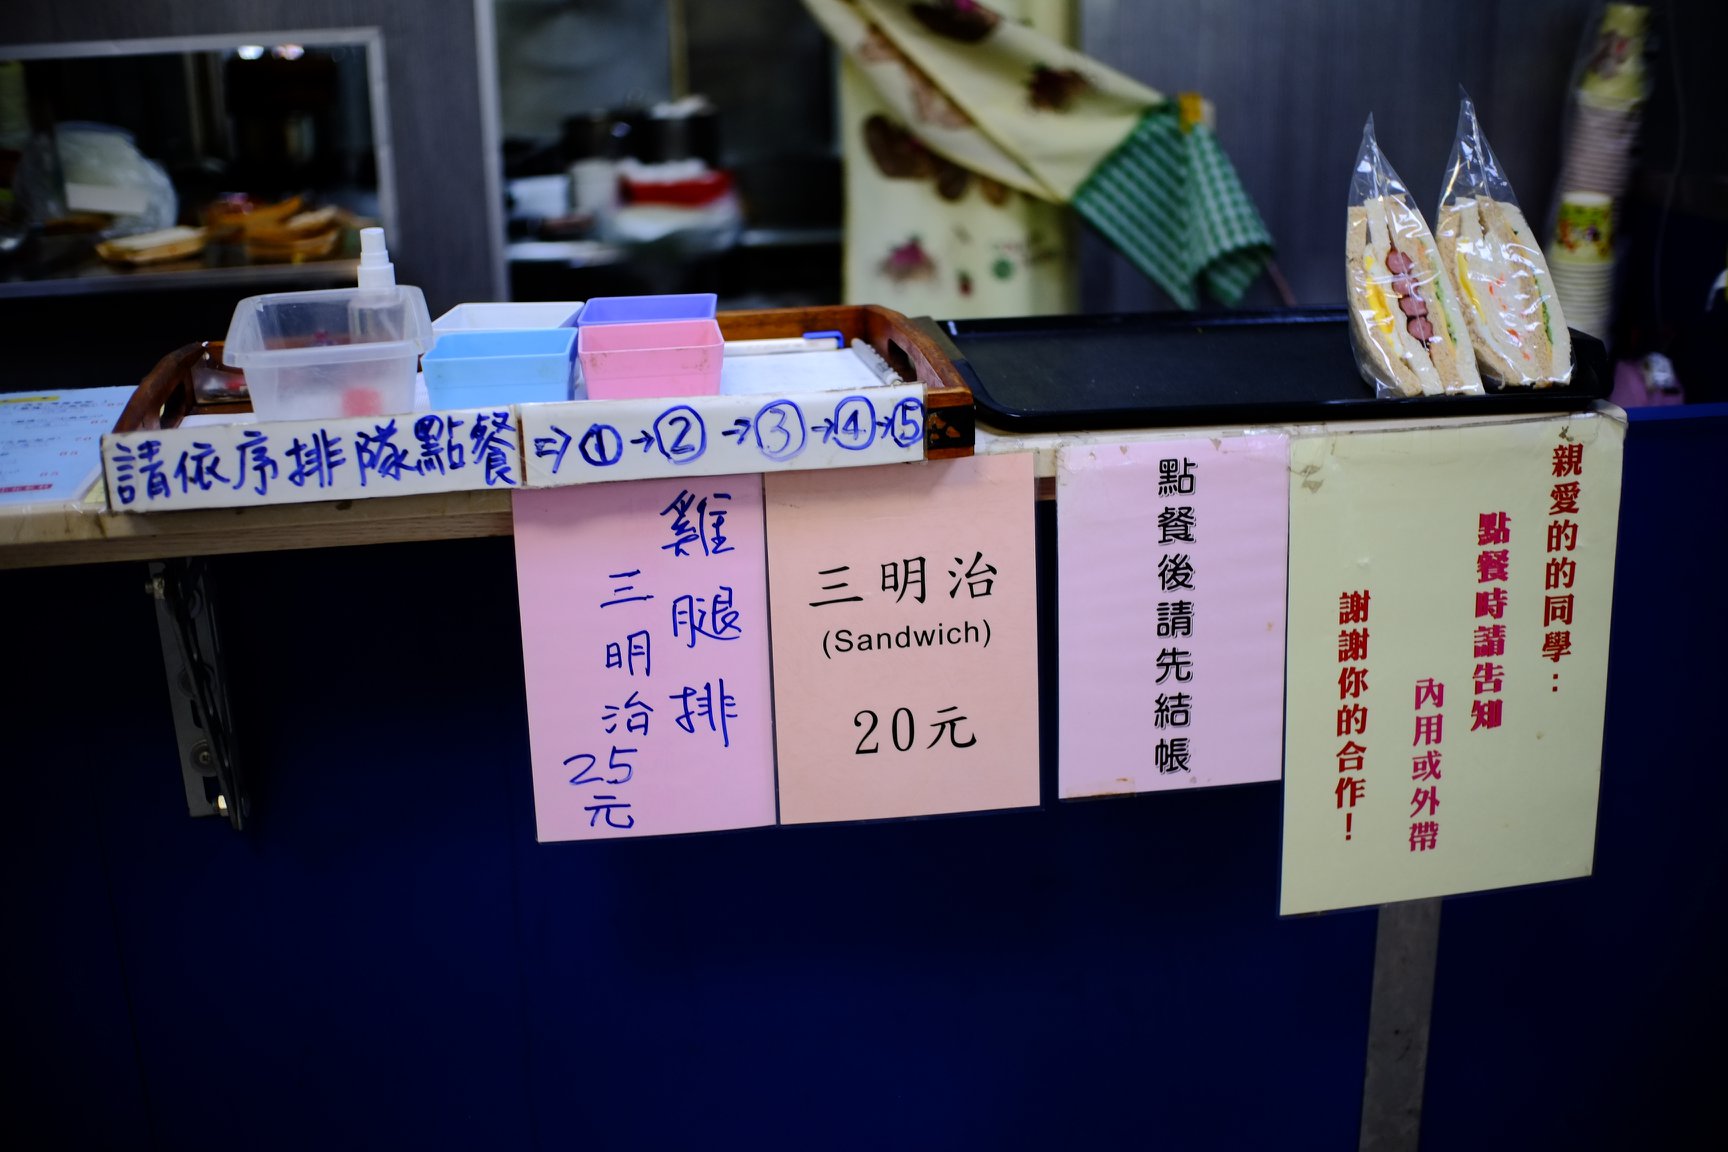 請依序排隊點餐⇒①→②→③→④→⑤
雞腿排
三明治
25
元
三明治
(Sandwich)
20元
點餐後請先結帳
親愛的的同學：
點餐時請告知
內用或外帶
謝謝你的合作！